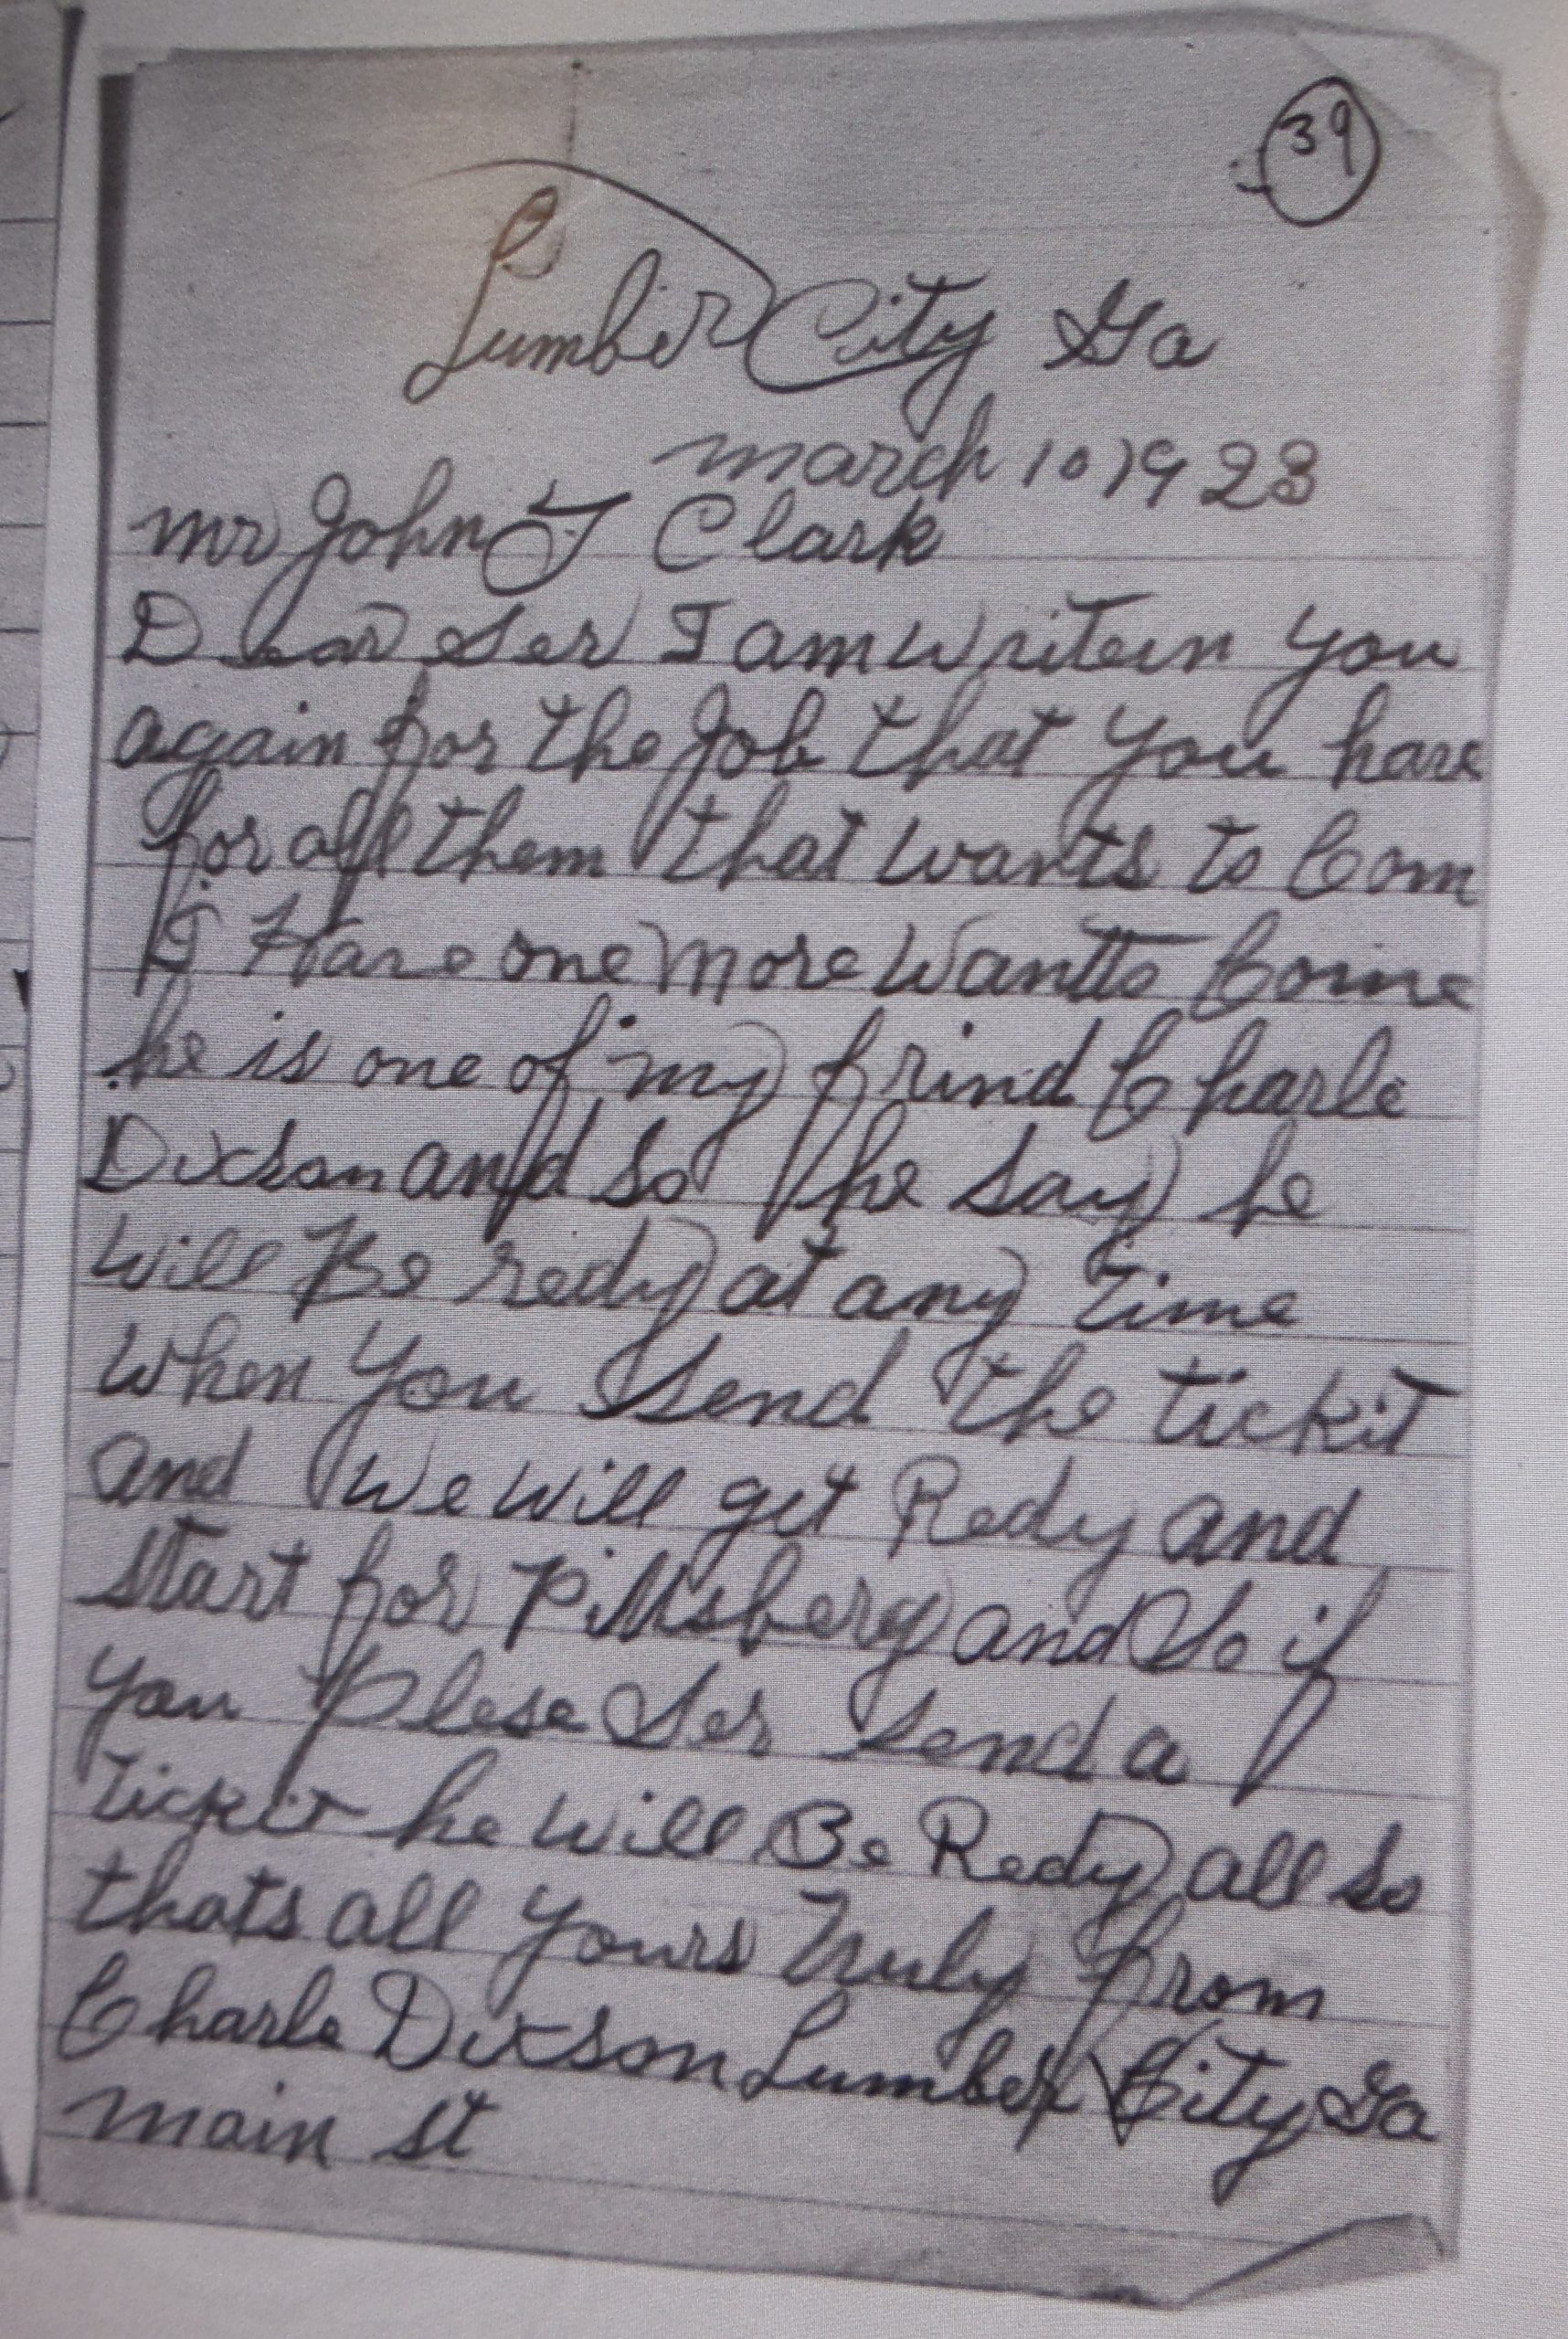 39
Lumber City Ga
march 10 1923
mr John T Clark
Dear Ser I am writein you
again for the Job that you have
for all them that wants to Com
I Have one more Want to Come
he is one of my frind Charle
Dixson and so he say he
will Be redy at any time
when you send the tickit
and we will get Redy and
start for Pittsberg and So if
you Plese Ser send a
tickit he will Be Redy all so
thats all yours truly from
Charle Dixson Lumber City Ga
main st